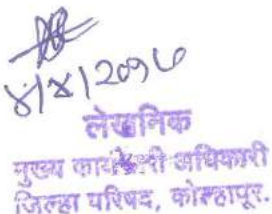 ४/४/२०१७
लेखनिक
मुख्य कार्यकारी अधिकारी
जिल्हा परिषद, कोल्हापूर.